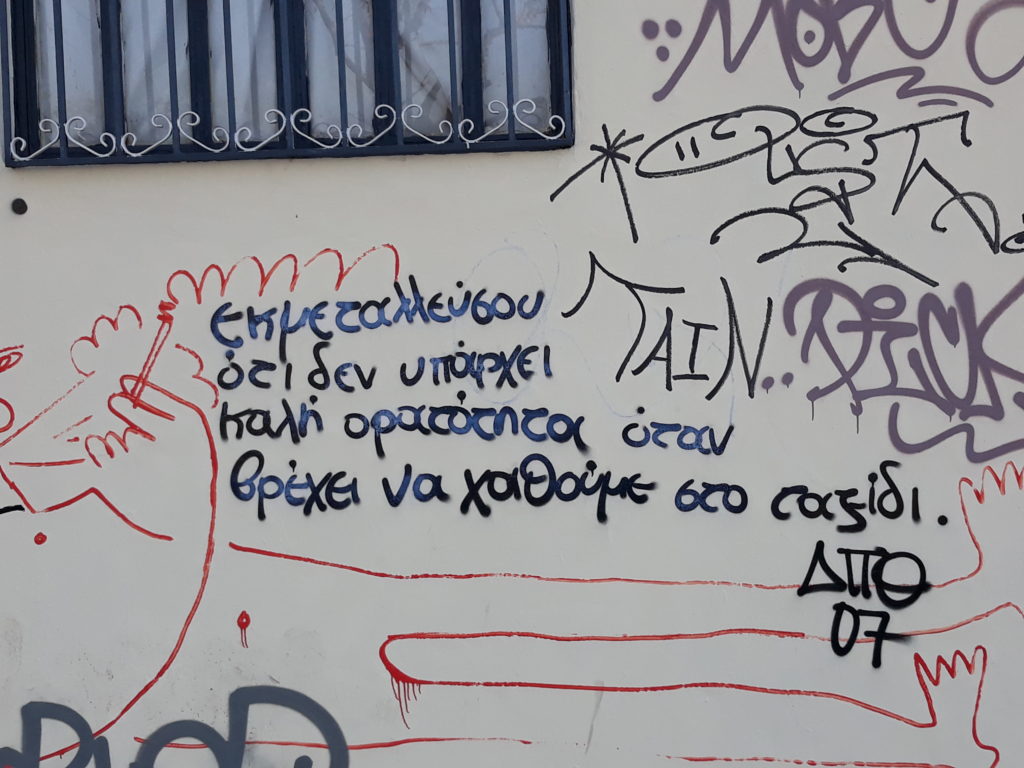 εκμεταλλεύσου
ότι δεν υπάρχει
καλή ορατότητα όταν
βρέχει να χαθούμε στο ταξίδι.
ΔΠΘ
07
TAIN..
DICK